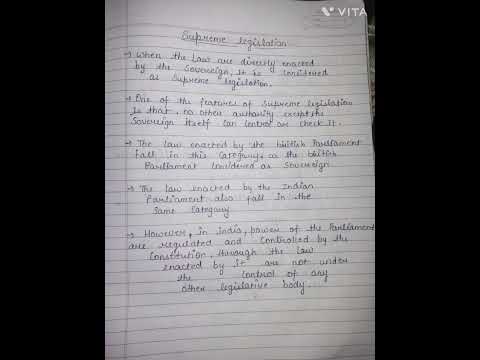 VITA
Supreme legislation
→ When the Law are directly enacted
by the Sovereign, It is considered
as Supreme legislation.
→ One of the features of Supreme legislation
Is that, no other authority except the
Sovereign Itself Can Control or check It.
→ The Law enacted by the British Parliament
fall in this Category, as the British
Parliament Considered as Sovereign.
→ The Law enacted by the Indian
Parliament also fall in the
Same Category
→ However, in India, power of the Parliament
are regulated and Controlled by the
Constitution, through the Law
enacted by it are not under
the Control of any
other legislative body.